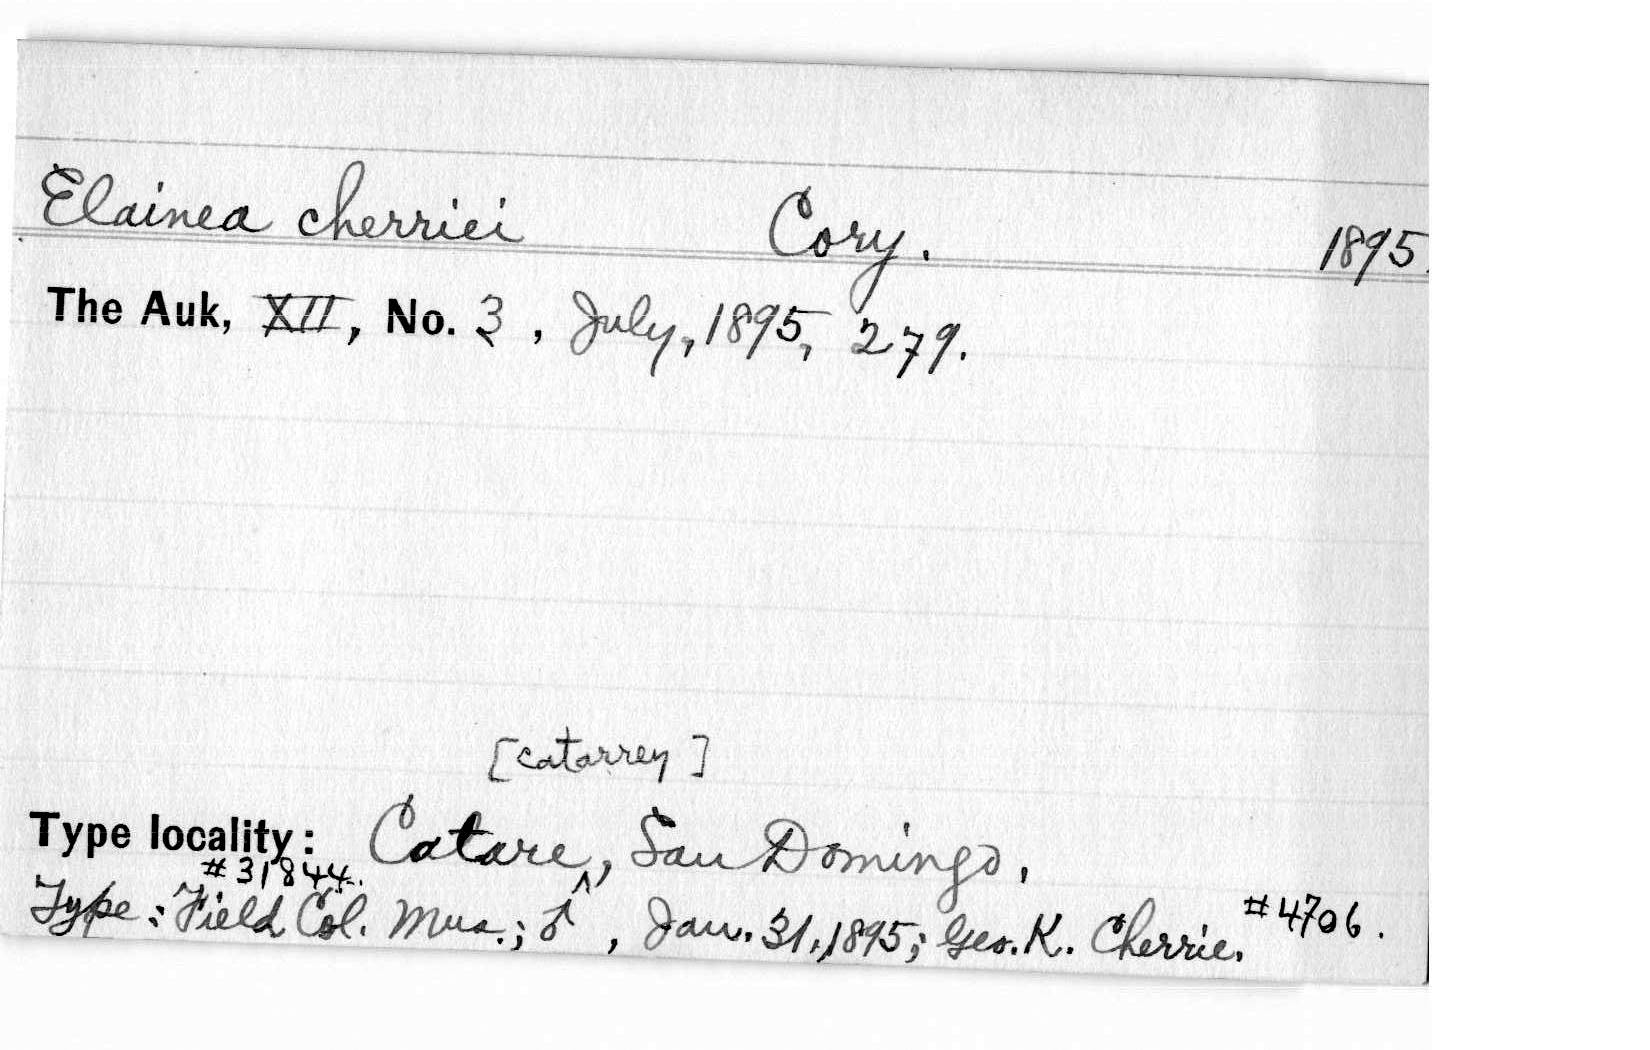 Elainea cherriei Cory. 1895.
The Auk, XII, No. 3, July, 1895, 279.
[Catarrey]
Type locality: Catare, San Domingo,
#31844.
Type: Field Col. Mus.; ♂, Jan. 31, 1895; Geo. K. Cherrie. #4706.